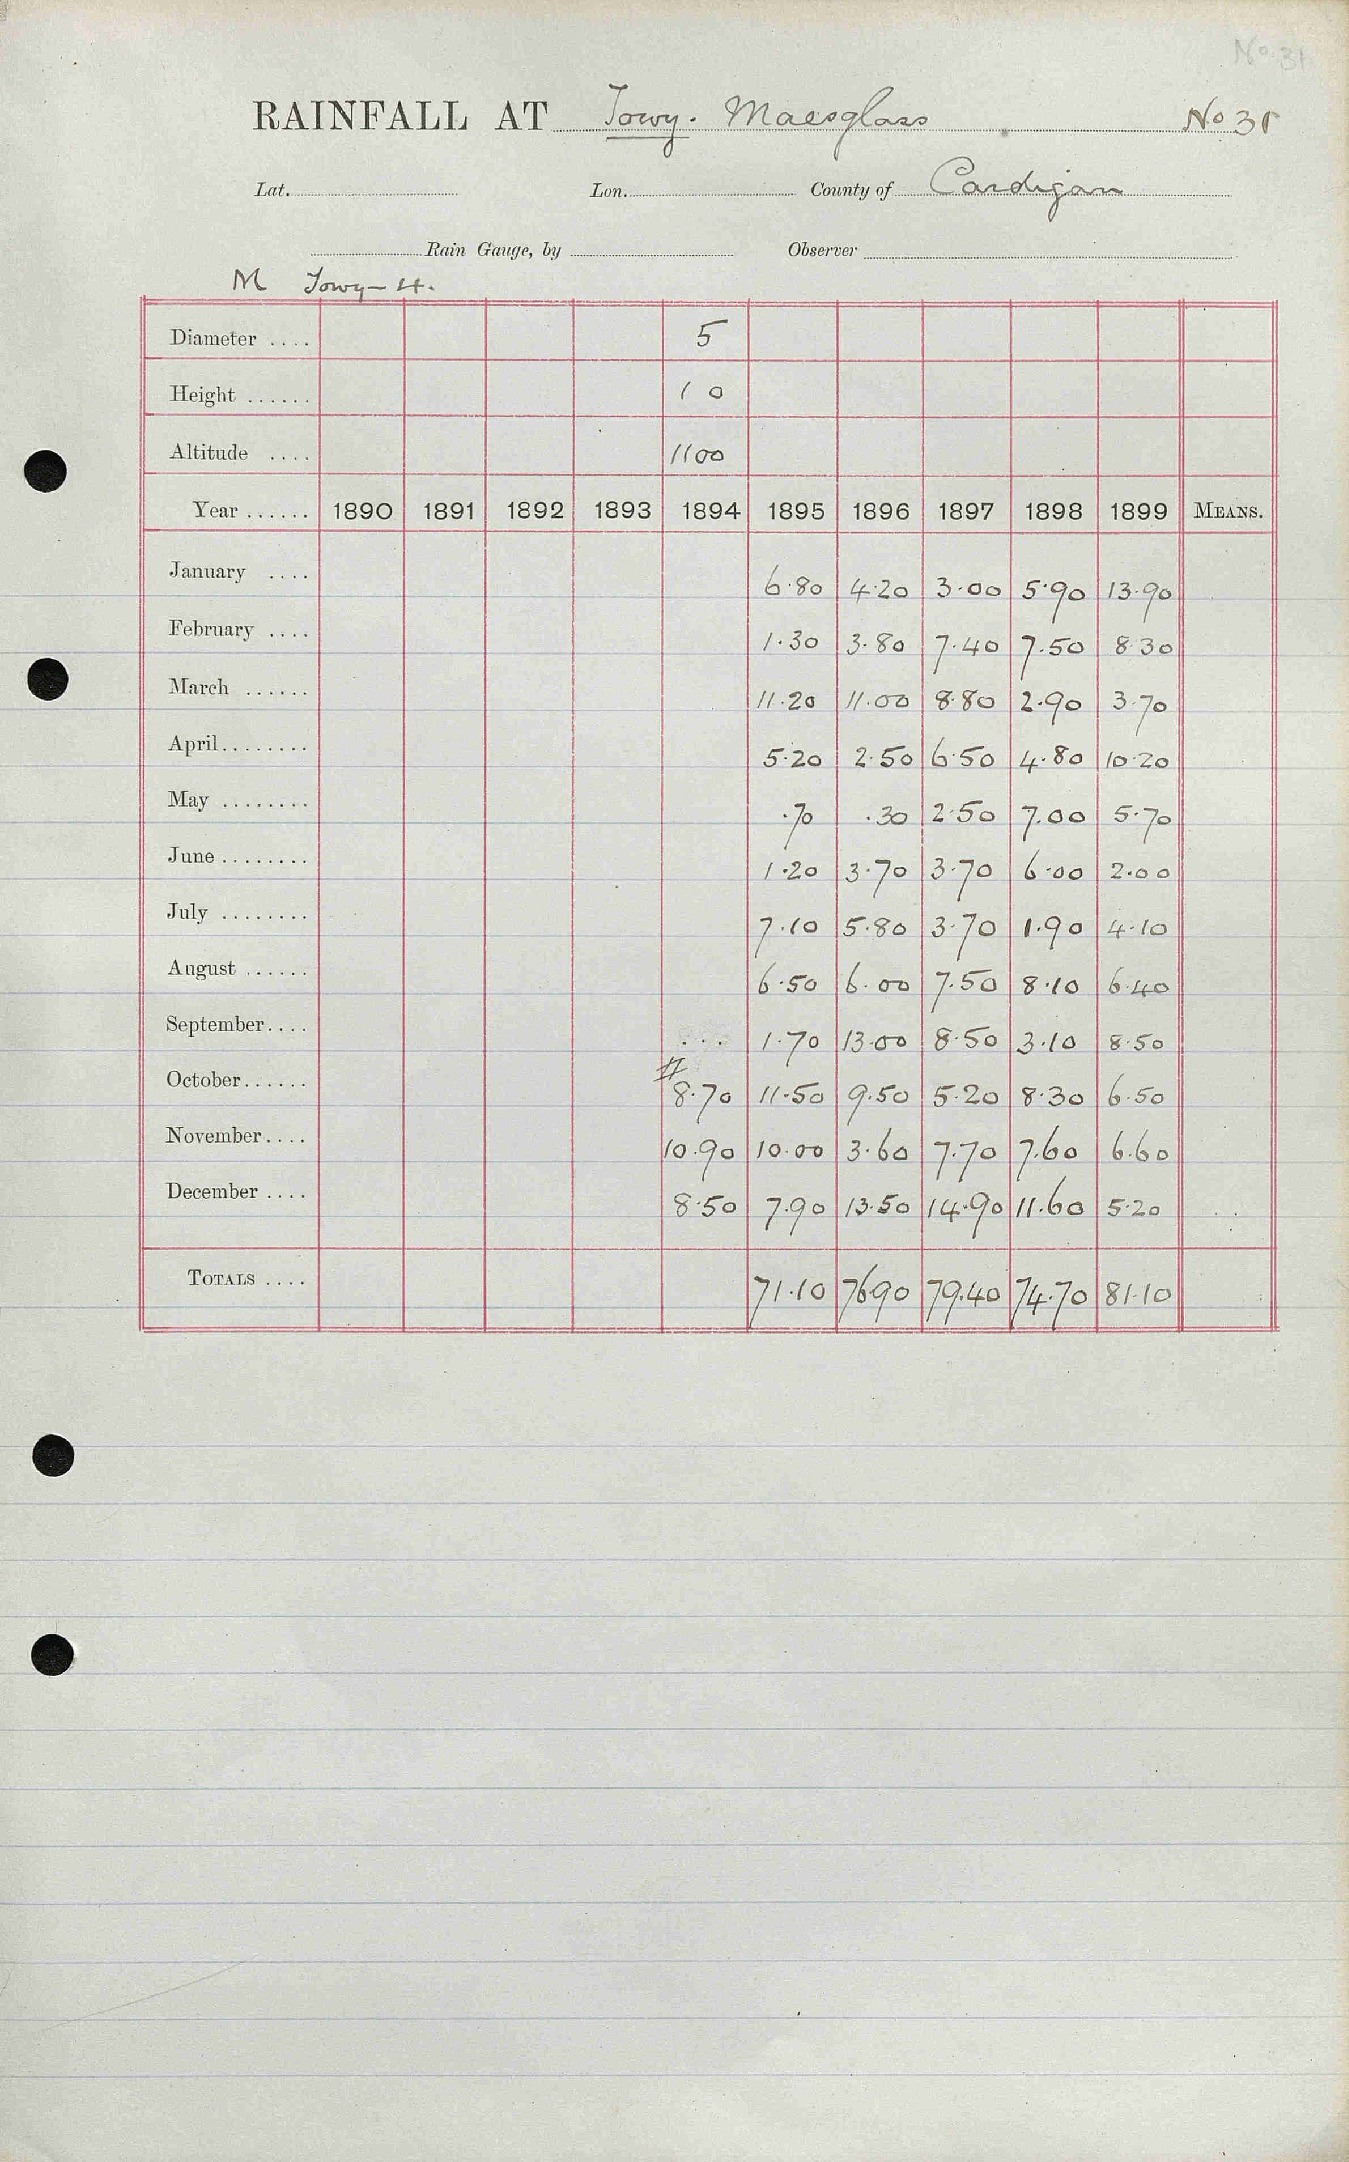 No 31
RAINFALL AT Towy. Maesglass No 31
Lat. Lon. County of Cardigan
Rain Gauge, by Observer
M Towy - 4.
Diameter .... 5
Height ...... 1 0
Altitude .... 1100
Year ...... 1890 1891 1892 1893 1894 1895 1896 1897 1898 1899 MEANS.
January .... 6.80 4.20 3.00 5.90 13.90
February .... 1.30 3.80 7.40 7.50 8.30
March ...... 11.20 11.00 8.80 2.90 3.70
April........ 5.20 2.50 6.50 4.80 10.20
May ........ .70 .30 2.50 7.00 5.70
June ........ 1.20 3.70 3.70 6.00 2.00
July ........ 7.10 5.80 3.70 1.90 4.10
August ...... 6.50 6.00 7.50 8.10 6.40
September.... ... 1.70 13.00 8.50 3.10 8.50
October...... # 8.70 11.50 9.50 5.20 8.30 6.50
November.... 10.90 10.00 3.60 7.70 7.60 6.60
December .... 8.50 7.90 13.50 14.90 11.60 5.20
TOTALS .... 71.10 76.90 79.40 74.70 81.10